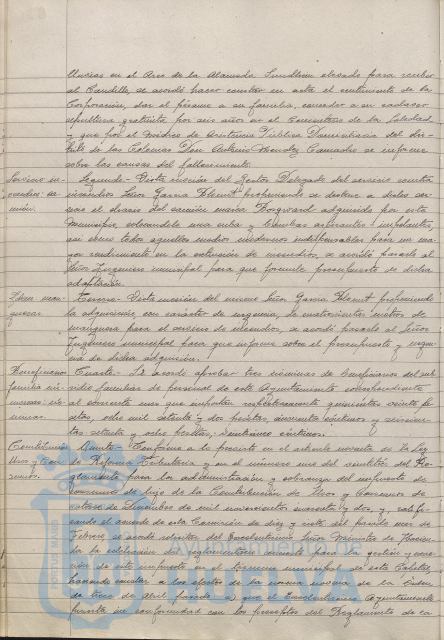 lluvias en el Arco de la Alameda Sundheim elevado para recibir
al Caudillo, se acordó hacer constar en acta el sentimiento de la
Corporación, dar el pésame a su familia, conceder a su cadáver
sepultura gratuita por seis años en el Cementerio de la Soledad
y que por el médico de Asistencia Pública Domiciliaria del dis-
trito de las Colonias Don Antonio Mendez Camacho se informe
sobre las causas del fallecimiento.
Servicio in-
cendios se-
Segundo.- Vista moción del Gestor Delegado del servicio contra
incendios Señor Garcia proponiendo se destine a dicho ser-
vicio el chasis del camión marca Borgward adquirido por este
Municipio, colocándole una cuba y bombas aspirantes impelentes,
así como todos aquellos medios modernos indispensables para un ma-
yor rendimiento en la extinción de incendios, se acordó pasarlo al
Señor Ingeniero municipal para que formule presupuesto de dicha
adaptación.
Idem man-
gueras.
Tercero.- Vista moción del mismo Señor Garcia proponiendo
la adquisición, con carácter de urgencia, de cuatrocientos metros de
manguera para el servicio de incendios, se acordó pasarlo al Señor
Ingeniero municipal para que informe sobre el presupuesto y urgen-
cia de dicha adquisición.
Beneficiarios
familia
Cuarto.- Se acordó aprobar tres nóminas de beneficiarios del sub-
sidio familiar de personal de este Ayuntamiento correspondiente
al corriente mes que importan respectivamente quinientas veinte pe-
setas, ocho mil setenta y dos pesetas, cincuenta céntimos y seiscien-
tas setenta y ocho pesetas, veinticinco céntimos.
Contribución
Usos y Con-
sumos.
Quinto.- Conforme a lo prescrito en el artículo noventa de la Ley
de Reforma Tributaria y en el número uno del ventidos del Re-
glamento para la administración y cobranza del impuesto de
consumos de lujo de la Contribución de Usos y Consumos de
catorce de Diciembre de mil novecientos cuarenta y dos, y, ratifi-
cando el acuerdo de esta Comisión de diez y siete del pasado mes de
Febrero, se acordó solicitar del Excelentísimo Señor Ministro de Hacien-
da la celebración del reglamentario concierto para la gestión y exac-
ción de este impuesto en el término municipal de esta Capital,
haciendo constar a los efectos de la norma novena de la Orden
de trece de Abril pasado: a) que el Excelentísimo Ayuntamiento
cuenta de conformidad con los preceptos del Reglamento de la